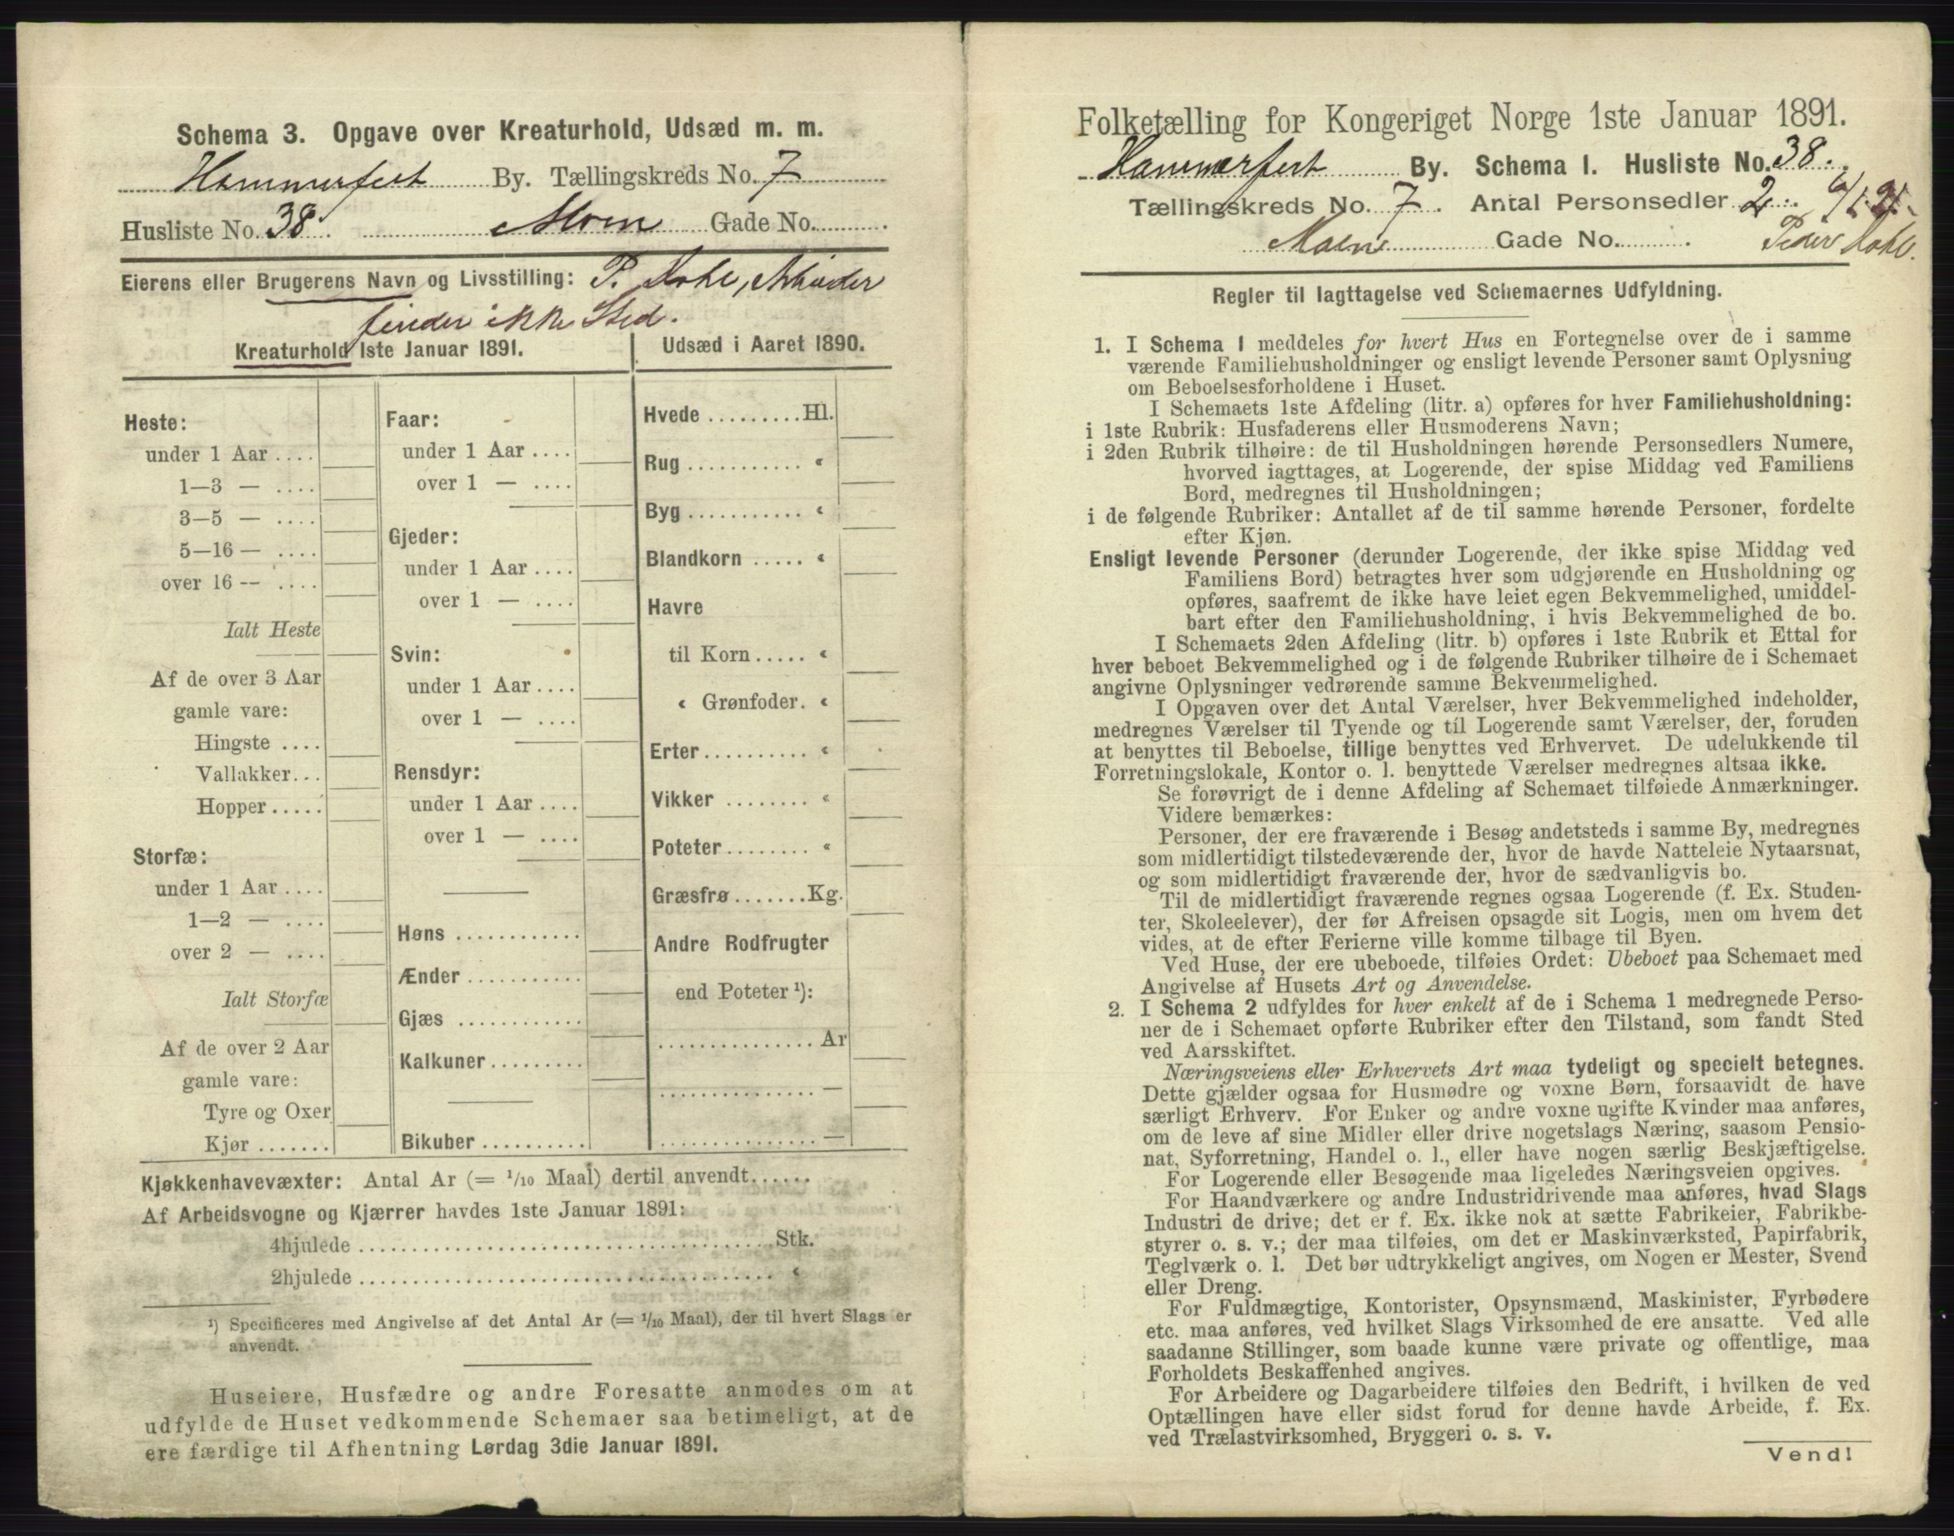 Schema 3. Opgave over Kreaturhold, Udsæd m. m.
Hammerfest By. Tællingskreds No. 7
Husliste No. 38. Moen Gade No.
Eierens eller Brugerens Navn og Livsstilling: P. Arbeider
finder ikke Sted.
Kreaturhold 1ste Januar 1891.
Heste:
under 1 Aar ....
1—3 — ....
3—5 — ....
5—16 — ....
over 16 — ....
Ialt Heste
Af de over 3 Aar
gamle vare:
Hingste ....
Vallakker...
Hopper .....
Storfæ:
under 1 Aar ....
1—2 — ....
over 2 — ....
Ialt Storfæ
Af de over 2 Aar
gamle vare:
Tyre og Oxer
Kjør .......
Faar:
under 1 Aar ....
over 1 — ....
Gjeder:
under 1 Aar ....
over 1 — ....
Svin:
under 1 Aar ....
over 1 — ....
Rensdyr:
under 1 Aar ....
over 1 — ....
Høns ............
Ænder ...........
Gjæs ............
Kalkuner .........
Bikuber ..........
Udsæd i Aaret 1890.
Hvede .........Hl.
Rug ........... «
Byg ........... «
Blandkorn ..... «
Havre
til Korn ..... «
« Grønfoder. «
Erter .......... «
Vikker ........ «
Poteter ........ «
Græsfrø .......Kg.
Andre Rodfrugter
end Poteter ¹):
............... Ar
............... —
............... —
Kjøkkenhavevæxter: Antal Ar (= 1/10 Maal) dertil anvendt......
Af Arbeidsvogne og Kjærrer havdes 1ste Januar 1891:
4hjulede ...................................... Stk.
2hjulede ...................................... «
¹) Specificeres med Angivelse af det Antal Ar (= 1/10 Maal), der til hvert Slags er
anvendt.
Huseiere, Husfædre og andre Foresatte anmodes om at
udfylde de Huset vedkommende Schemaer saa betimeligt, at de
ere færdige til Afhentning Lørdag 3die Januar 1891.
Folketælling for Kongeriget Norge 1ste Januar 1891.
Hammerfest By. Schema I. Husliste No. 38.
Tællingskreds No. 7. Antal Personsedler 2.
Moen Gade No. Peder
Regler til Iagttagelse ved Schemaernes Udfyldning.
1. I Schema I meddeles for hvert Hus en Fortegnelse over de i samme
værende Familiehusholdninger og ensligt levende Personer samt Oplysning
om Beboelsesforholdene i Huset.
I Schemaets 1ste Afdeling (litr. a) opføres for hver Familiehusholdning:
i 1ste Rubrik: Husfaderens eller Husmoderens Navn;
i 2den Rubrik tilhøire: de til Husholdningen hørende Personsedlers Numere,
hvorved iagttages, at Logerende, der spise Middag ved Familiens
Bord, medregnes til Husholdningen;
i de følgende Rubriker: Antallet af de til samme hørende Personer, fordelte
efter Kjøn.
Ensligt levende Personer (derunder Logerende, der ikke spise Middag ved
Familiens Bord) betragtes hver som udgjørende en Husholdning og
opføres, saafremt de ikke have leiet egen Bekvemmelighed, umiddel-
bart efter den Familiehusholdning, i hvis Bekvemmelighed de bo.
I Schemaets 2den Afdeling (litr. b) opføres i 1ste Rubrik et Ettal for
hver beboet Bekvemmelighed og i de følgende Rubriker tilhøire de i Schemaet
angivne Oplysninger vedrørende samme Bekvemmelighed.
I Opgaven over det Antal Værelser, hver Bekvemmelighed indeholder,
medregnes Værelser til Tyende og til Logerende samt Værelser, der, foruden
at benyttes til Beboelse, tillige benyttes ved Erhvervet. De udelukkende til
Forretningslokale, Kontor o. l. benyttede Værelser medregnes altsaa ikke.
Se forøvrigt de i denne Afdeling af Schemaet tilføiede Anmærkninger.
Videre bemærkes:
Personer, der ere fraværende i Besøg andetsteds i samme By, medregnes
som midlertidigt tilstedeværende der, hvor de havde Natteleie Nytaarsnat,
og som midlertidigt fraværende der, hvor de sædvanligvis bo.
Til de midlertidigt fraværende regnes ogsaa Logerende (f. Ex. Studen-
ter, Skoleelever), der før Afreisen opsagde sit Logis, men om hvem det
vides, at de efter Ferierne ville komme tilbage til Byen.
Ved Huse, der ere ubeboede, tilføies Ordet: Ubeboet paa Schemaet med
Angivelse af Husets Art og Anvendelse.
2. I Schema 2 udfyldes for hver enkelt af de i Schema 1 medregnede Perso-
ner de i Schemaet opførte Rubriker efter den Tilstand, som fandt Sted
ved Aarsskiftet.
Næringsveiens eller Erhvervets Art maa tydeligt og specielt betegnes.
Dette gjælder ogsaa for Husmødre og voxne Børn, forsaavidt de have
særligt Erhverv. For Enker og andre voxne ugifte Kvinder maa anføres,
om de leve af sine Midler eller drive nogetslags Næring, saasom Pensio-
nat, Syforretning, Handel o. l., eller have nogen særlig Beskjæftigelse.
For Logerende eller Besøgende maa ligeledes Næringsveien opgives.
For Haandværkere og andre Industridrivende maa anføres, hvad Slags
Industri de drive; det er f. Ex. ikke nok at sætte Fabrikeier, Fabrikbe-
styrer o. s. v.; der maa tilføies, om det er Maskinværksted, Papirfabrik,
Teglværk o. l. Det bør udtrykkeligt angives, om Nogen er Mester, Svend
eller Dreng.
For Fuldmægtige, Kontorister, Opsynsmænd, Maskinister, Fyrbødere
etc. maa anføres, ved hvilket Slags Virksomhed de ere ansatte. Ved alle
saadanne Stillinger, som baade kunne være private og offentlige, maa
Forholdets Beskaffenhed angives.
For Arbeidere og Dagarbeidere tilføies den Bedrift, i hvilken de ved
Optællingen have eller sidst forud for denne havde Arbeide, f. Ex.
ved Trælastvirksomhed, Bryggeri o. s. v.
Vend!